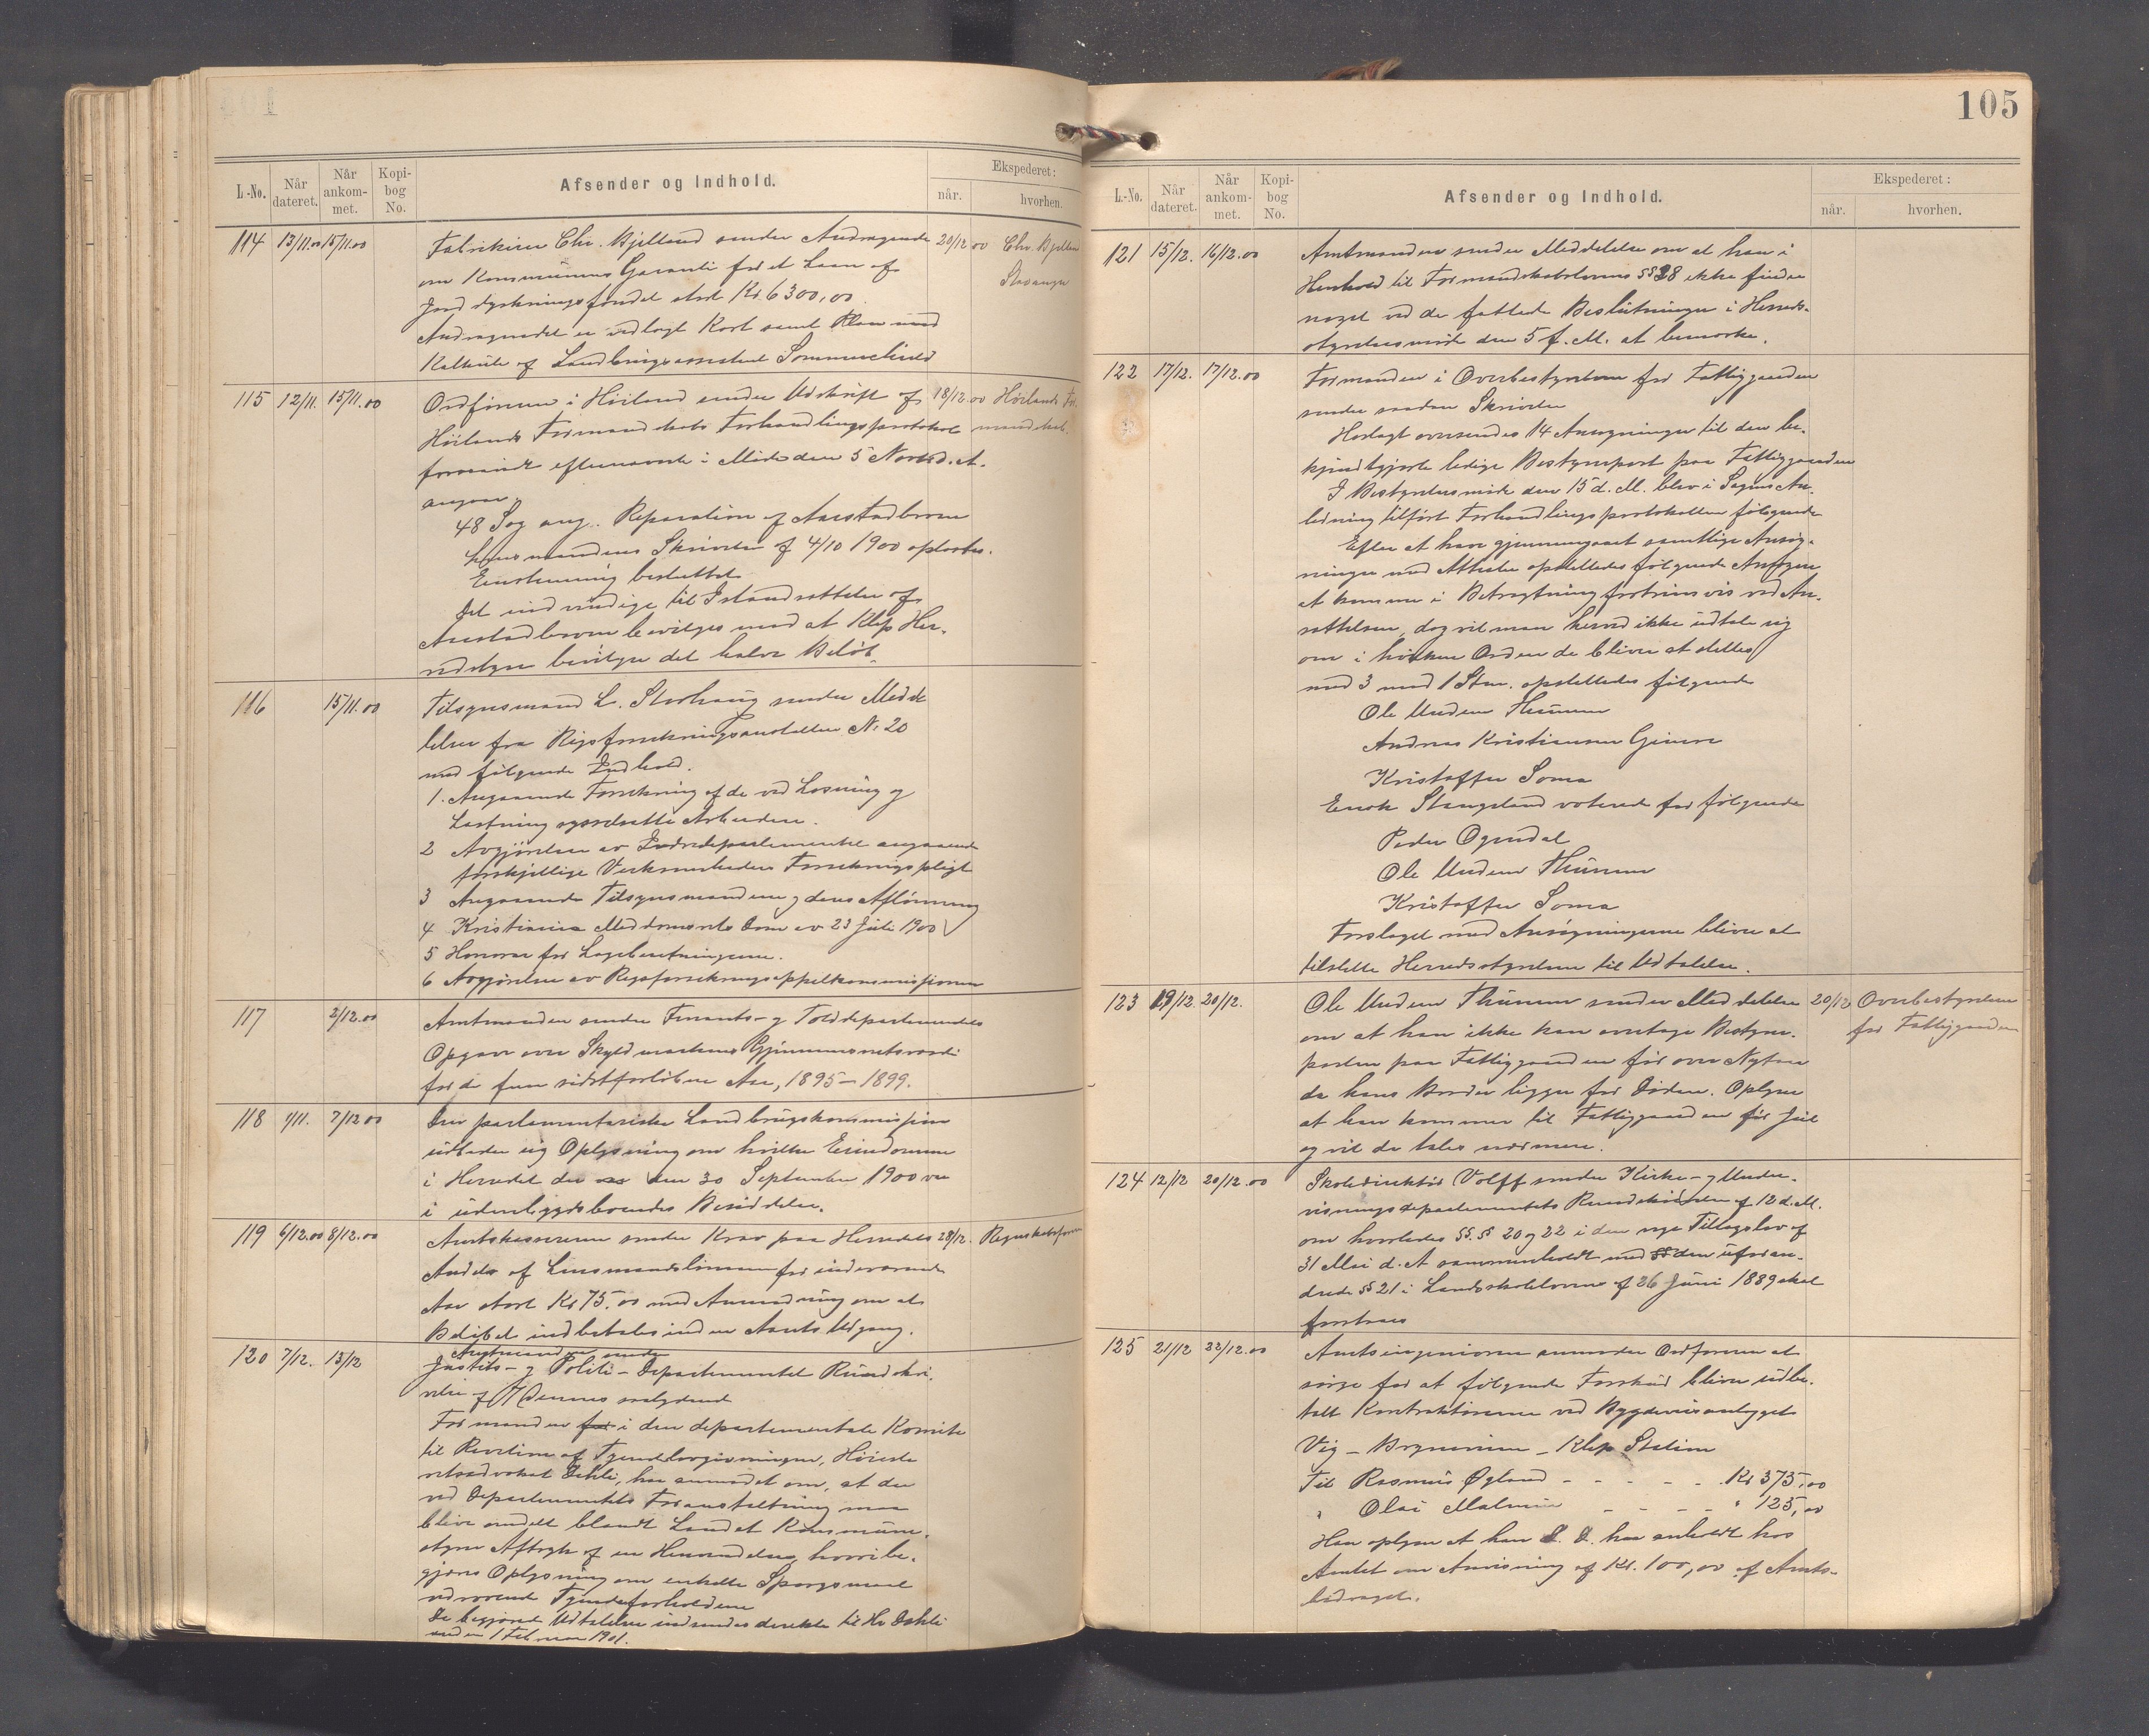 L.-No. Når dateret. Når ankommet. Kopibog No. Afsender og Indhold. Ekspederet: når. hvorhen.
114 13/11.00 15/11.00 Fabrikeier Chr. Bjelland sender Andragende 20/12 00 Chr. Bjelland
om Kommunens Garanti for et Laan af Stavanger
Jorddyrkningsfondet stort Kr. 6300,00
Andragendet er vedlagt Kart samt Plan med
Kalkule af Landbrugsassistent Sommerchield
115 12/11. 15/11.00 Ordføreren i Høiland sender Udskrift af 18/12.00 Høilands For-
Høilands Formandskabs Forhandlingsprotokol mandskab.
forsaavidt efternævnte i Møde den 5 Novbr. d. A.
angaar
48 Sag ang. Reparation af Aarstadbroen
Lensmandens Skrivelse af 4/10 1900 oplæstes.
Enstemmig besluttet
Det nødvendige til Istandsættelse af
Aarstadbroen bevilges mod at Klep Her-
redstyre bevilger det halve Beløb.
116 15/11.00 Tilsynsmand L. Storhaug sender Medde
lelser fra Rigsforsikringsanstalten No 20
med følgende Indhold.
1. Angaaende Forsikring af de ved Losning og
Lastning sysselsatte Arbeidere.
2 Avgjørelser av Indredepartementet angaaende
forskjellige Virksomheders Forsikringspligt
3 Angaaende Tilsynsmændene og deres Aflønning
4 Kristiania Meddomsrets Dom av 23 Juli 1900
5 Honorar for Lægeberetningerne.
6 Avgjørelser av Rigsforsikringsappelkommissionen
117 2/12.00 Amtmanden sender Finants- og Tolddepartementets
Opgave over Skyldmarkens Gjennemsnitsværdi
for de fem sidstforløbne Aar, 1895–1899.
118 1/11. 7/12 00 Den parlamentariske Landbrugskommission
udbeder sig Oplysning om hvilke Eiendomme
i Herredet der den 30 September 1900 var
i udenbygdsboendes Besiddelse.
119 6/12.00 8/12.00 Amtskassereren sender Krav paa Herredets 28/12. Regnskabsføreren
Andel af Lensmandslønnen for indeværende
Aar stort Kr 75.00 med Anmodning om at
Beløbet indbetales inden Aarets Udgang.
120 7/12. 13/12 Amtmanden sender
Justits- og Politi-Departementet Rundskri-
velse af 7 Dennes saalydende
Formanden for i den departementale Komite
til Revision af Tyendelovgivningen, Høieste
retsadvokat Dahli, har anmodet om, at der
ved Departementets Foranstaltning maa
blive omdelt blandt Landets Kommune-
styrer Aftryk af en Henvendelse, hvori be-
gjæres Oplysning om enkelte Spørgsmaal
vedrørende Tyendeforholdene
De begjærede Udtalelser indsendes direkte til Hr Dahli
inden 1 Februar 1901.
105
L.-No. Når dateret. Når ankommet. Kopibog No. Afsender og Indhold. Ekspederet: når. hvorhen.
121 15/12. 16/12.00 Amtmanden sender Meddelelse om at han i
Henhold til Formandskabslovens §§38 ikke finder
noget ved de fattede Beslutninger i Herreds-
styrelsesmøde den 5 f. M. at bemærke.
122 17/12. 17/12.00 Formanden i Overbestyrelsen for Fattiggaarden
sender saadan Skrivelse
Hoslagt oversendes 14 Ansøgninger til den be-
kjendtgjorte ledige Bestyrerpost paa Fattiggaarden
I Bestyrelsesmøde den 15 d. M. blev i Sagens An-
ledning tilført Forhandlingsprotokollen følgende
Efter at have gjennemgaaet samtlige Ansøg-
ninger med Attester opstilledes følgende Ansøgere
at komme i Betragtning fortrinsvis ved An-
sættelsen, dog vil man herved ikke udtale sig
om i hvilken Orden de bliver at stilles
med 3 mod 1 Stm. opstilledes følgende
Ole Undem Thunem
Andreas Kristiansen Giævre
Kristoffer Soma
Enok Stangeland voterede for følgende
Peder Ogndal
Ole Undem Thunem
Kristoffer Soma
Forslaget med Ansøgningerne bliver at
tilstille Herredsstyrelsen til Udtalelse.
123 19/12. 20/12. Ole Undem Thunem sender Meddelelse 20/12 Overbestyrelsen
om at han ikke kan overtage Bestyrer- for Fattiggaarden
posten paa Fattiggaarden før over Nytaar
da hans Broder ligger for Døden. Oplyser
at han kommer til Fattiggaarden før Jul
og vil da tales nærmere.
124 12/12 20/12.00 Skoledirektør Volff sender Kirke- og Under-
visningsdepartementets Rundskrivelse af 12 d. M.
om hvorledes §§.§ 20 og 22 i den nye Tillægslov af
31 Mai d. A sammenholdt med § den uforan-
drede §§ 21 i Landsskoleloven af 26 Juni 1889 skal
forstaaes
125 21/12 22/12.00 Amtsingeniøren anmoder Ordføreren at
sørge for at følgende Forskud bliver udbe-
talt Kontraktørerne ved Bygdeveisanlægget
Vig – Brynemoen – Klep Station
Til Rasmus Øgland - - - - - Kr 375,00
" Olai Malmin - - - - " 125,00
Han oplyser at han d. D. har anholdt hos
Amtet om Anvisning af Kr. 100,00 af Amts-
bidraget.